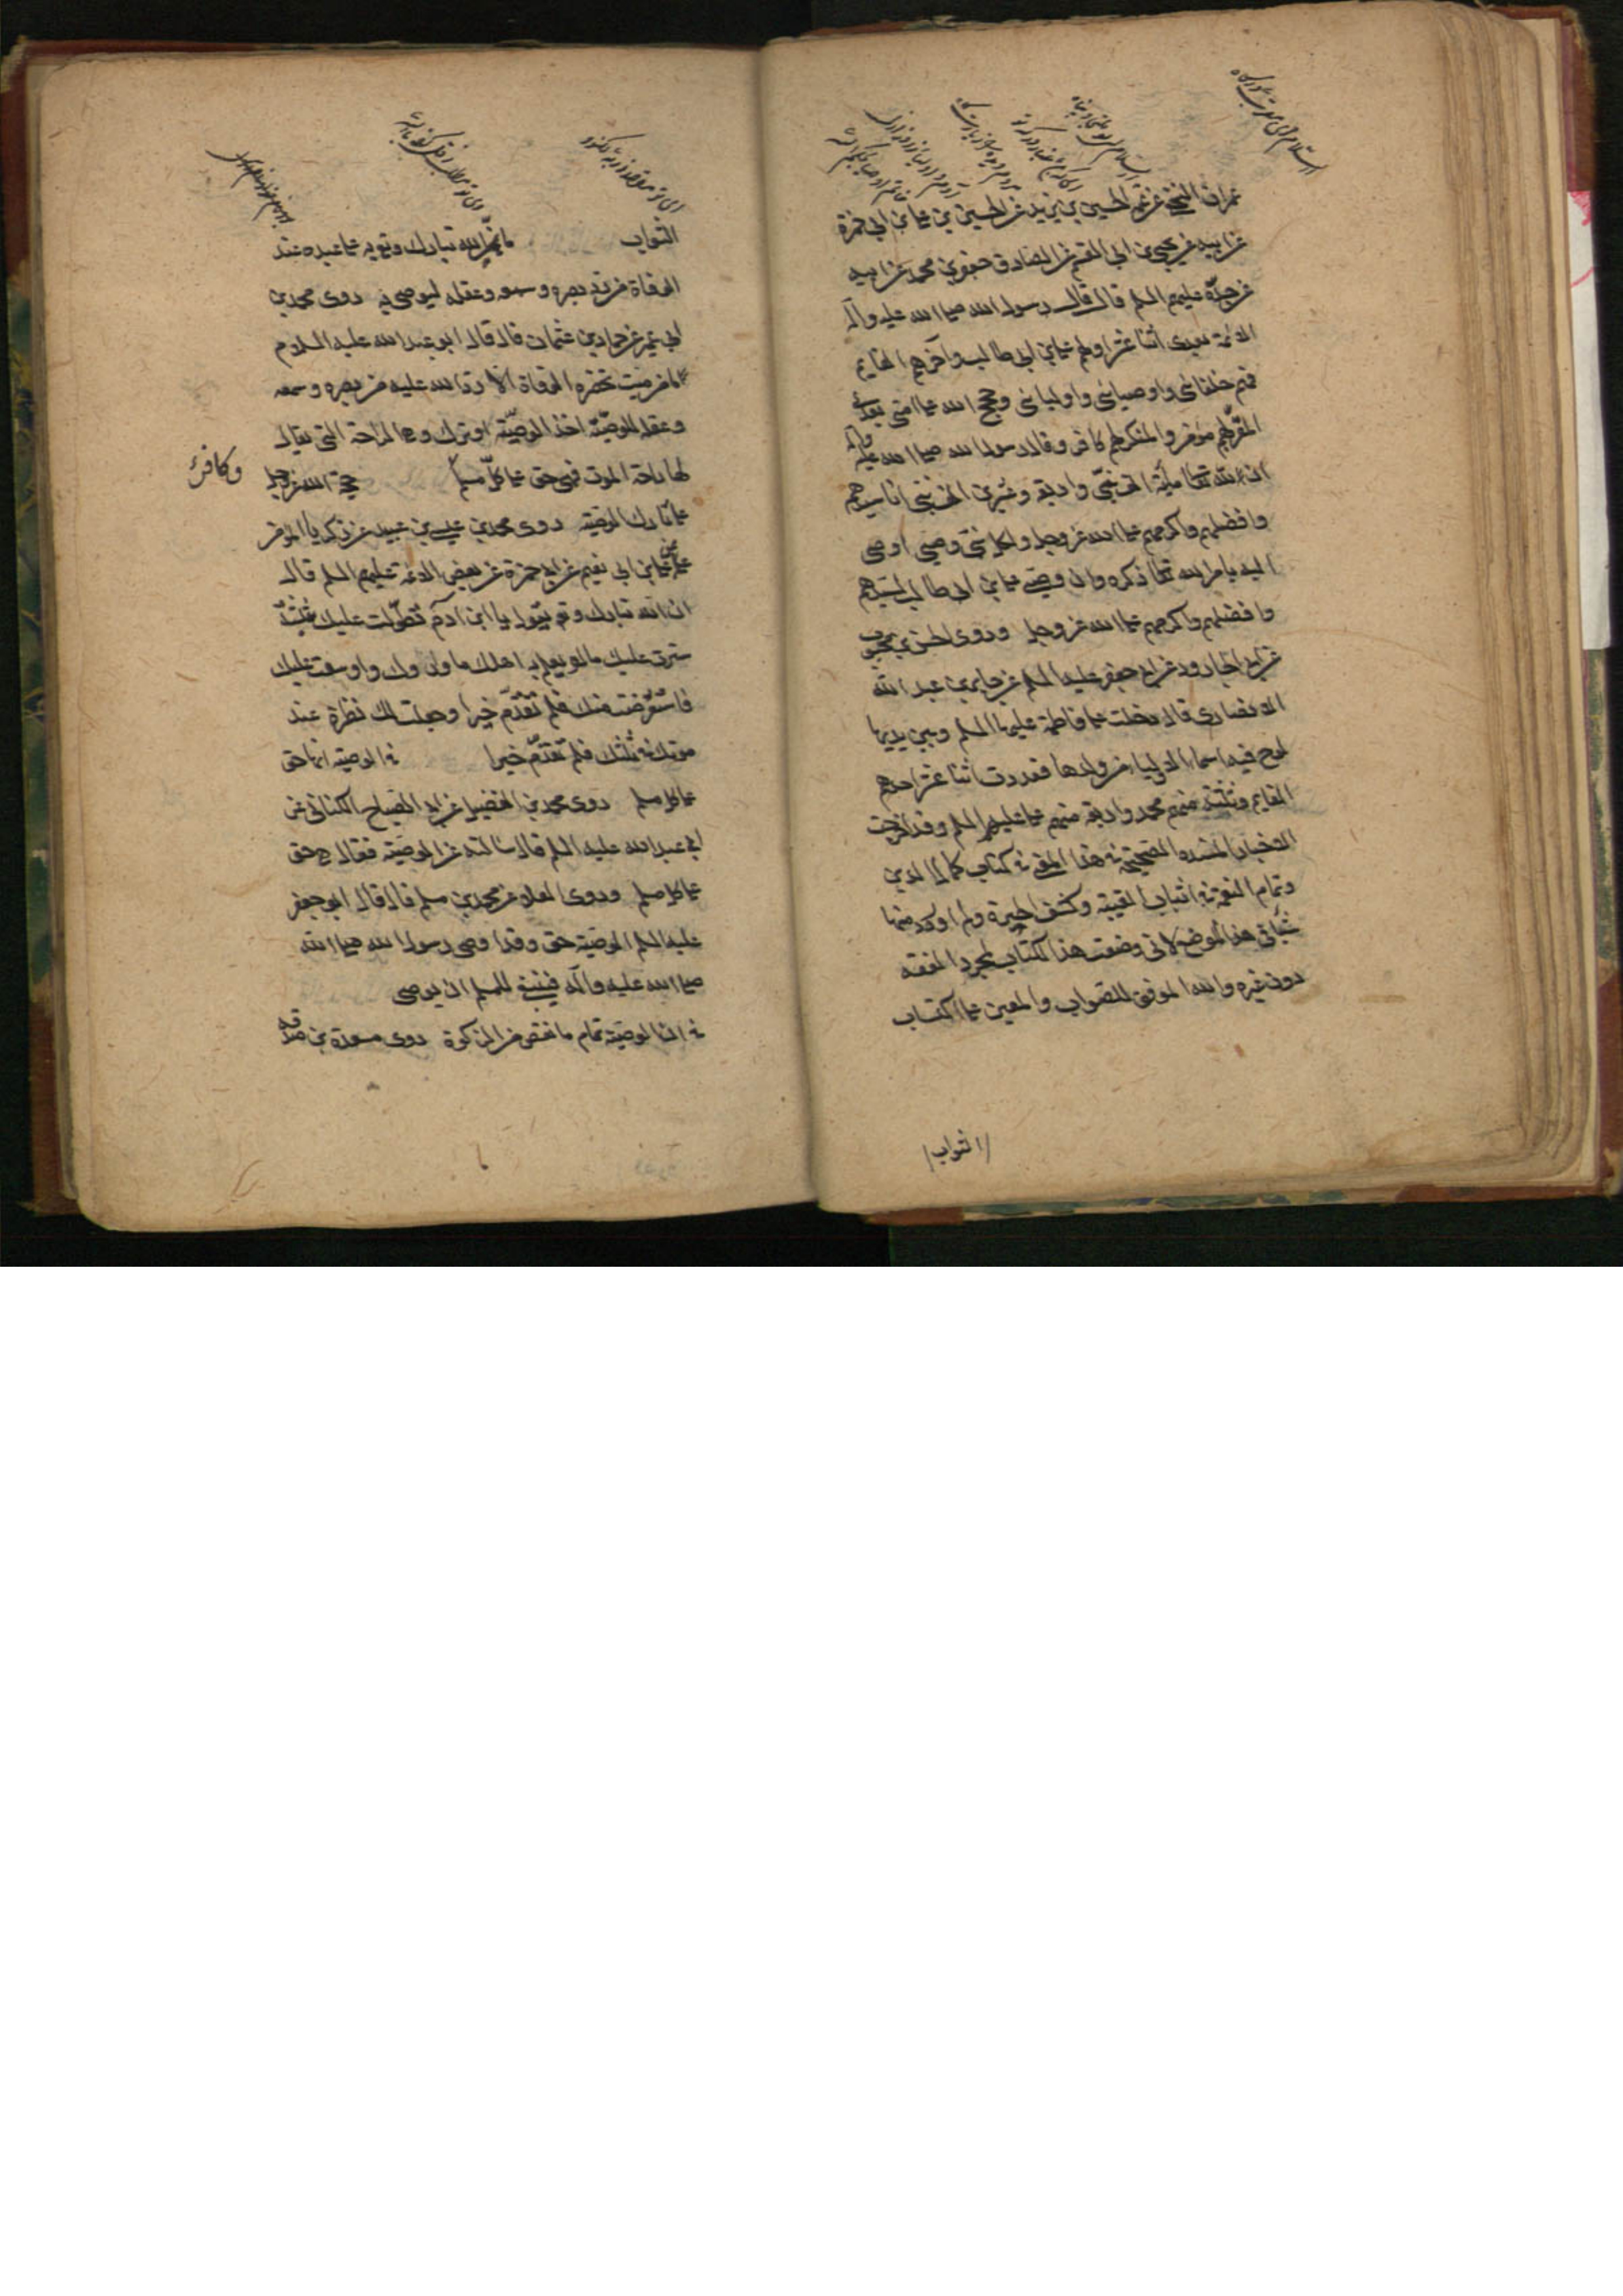 عمران النخعي عن عمه الحسين بن يزيد عن الحسين بن علي بن ابي حمزة
عن ابيه عن يحيى بن ابي القسم عن الصادق جعفر بن محمد عن ابيه
عن جدّه عليهم السلم قال قال رسول الله صلى الله عليه وآله
الائمة بعدى اثنا عشر اولهم علي بن ابى طالب وآخرهم القايم
فهم خلفائى واوصيائى واوليائى وحجج الله على امتى بعدى
المقرّ بهم مؤمن والمنكر لهم كافر وقال رسول الله صلى الله عليه وآله
ان لله تعالى مائة الف نبىّ واربعة وعشرين الف نبى انا سيدهم
وافضلهم واكرمهم على الله عز وجل ولكل نبىّ وصىّ اوصى
اليه بامر الله تعالى ذكره وان وصيى علي بن ابى طالب لسيدهم
وافضلهم واكرمهم على الله عز وجل وروى الحسن بن محبوب
عن ابى الجارود عن ابى جعفر عليه السلم عن جابر بن عبد الله
الانصارى قال دخلت على فاطمة عليها السلم وبين يديها
لوح فيه اسماء الاوصياء من ولدها فعددت اثنا عشر احدهم
القايم وثلثة منهم محمد واربعة منهم علي عليهم السلم وقد اخرجت
الاخبار المسندة الصحيحة فى هذا المعنى فى كتاب كمال الدين
وتمام النعمة فى اثبات الغيبة وكشف الحيرة ولم اورد منها
شيئا فى هذا الموضع لانى وضعت هذا الكتاب لمجرد الفقه
دون غيره والله الموفق للصواب والمعين على اكتساب
الثواب
الثواب ما يمنّ الله تبارك وتعالى به على عبده عند
الوفاة من ردّ بصره وسمعه وعقله ليوصى فيه روى محمد بن
ابى عمير عن حماد بن عثمان قال قال ابو عبد الله عليه السلام
ما من ميت تحضره الوفاة الا ردّ الله عليه من بصره وسمعه
وعقله للوصيّة اخذ الوصيّة او ترك وهى الراحة التى يقال
لها راحة الموت فهى حق على كلّ مسلم حجة الله عز وجل
على تارك الوصية روى محمد بن عيسى بن عبيد عن زكريا المؤمن
عن علي بن ابى نعيم عن ابى حمزة عن بعض الائمة عليهم السلم قال
ان الله تبارك وتعالى يقول يا ابن آدم تطوّلت عليك بثلثة
سترت عليك ما لو يعلم به اهلك ما واروك واوسعت عليك
فاستقرضت منك فلم تقدّم خيرا وجعلت لك نظرة عند
موتك فى ثلثك فلم تقدّم خيرا فى الوصية انها حق
على كل مسلم روى محمد بن الفضيل عن ابى الصباح الكنانى عن
ابى عبد الله عليه السلم قال سالته عن الوصيّة فقال هى حق
على كل مسلم وروى العلاء عن محمد بن مسلم قال قال ابو جعفر
عليه السلم الوصيّة حق وقد اوصى رسول الله صلى الله
صلى الله عليه وآله فينبغى للمسلم ان يوصى
فى ان الوصيّة تمام ما نقص من الزكوة روى مسعدة بن صدقه